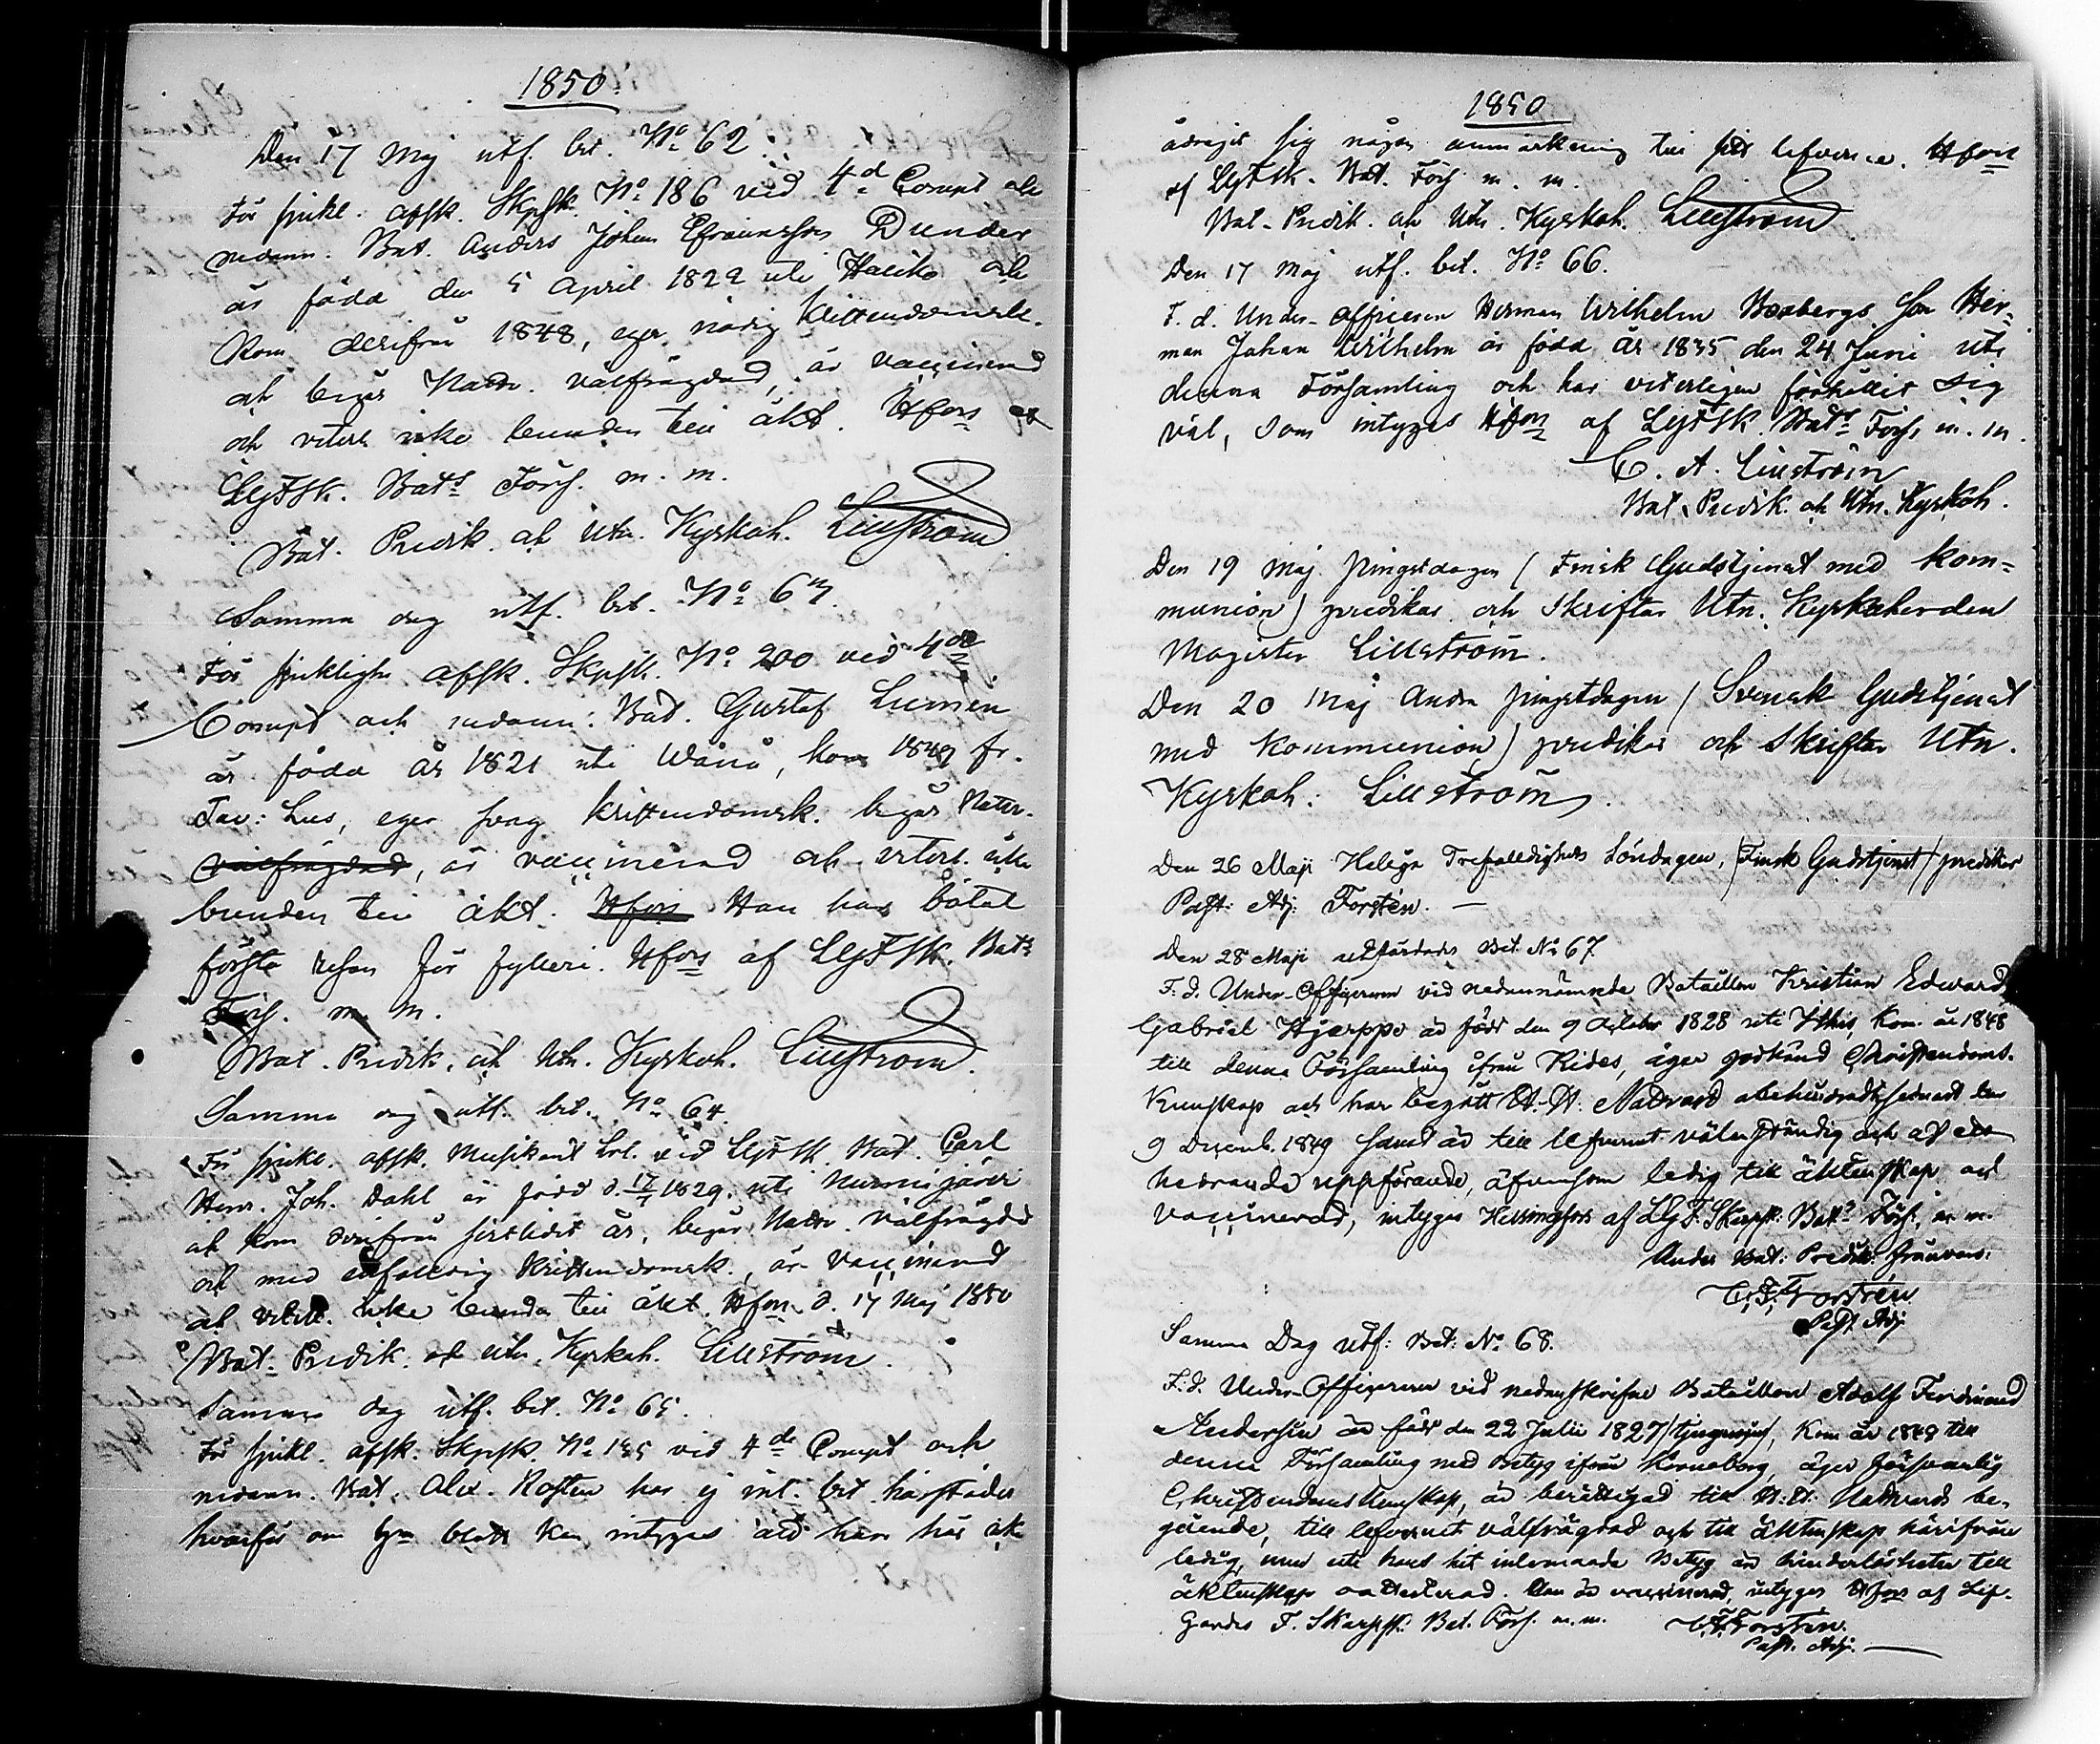 1850
Den 17 Maj utf. bet. No 62
För sjukl. afsk. Skpsk. No 186 vid 4d Compt och
nedann. Bat. Anders Johan Efraimsson Dunder
är född den 5 April 1822 uti Haliko och
kom derifrån 1848, eger nödig kristendomsk.
och begär Nattv. välfrägdad, är vaccinerad
och veterl. icke bunden till äkt. Hfors af
LgFSk. Bats Förs. m. m.
Bat. Predik. och Utn. Kyrkoh. Lillström
Samma dag utf. bet. No 63.
För sjuklighet afsk. Skpsk. No 200 vid 4de
Compt och nedann. Bat. Gustaf
är född år 1821 uti Wånå, kom 1849 fr.
Tav: hus, eger svag kristendomsk. begär Nattv.
välfrägdad, är vaccinerad och veterl. icke
bunden till äkt. Hfors Han har bötat
första resan för fylleri. Hfors af LgFSk. Bats
Förs. m. m.
Bat. Predik. och Utn. Kyrkoh. Lillström.
Samma dag utf. bet. No 64.
För sjukl. afsk. Musikant vid LgFSk. Bat. Carl
Henr. Joh. Dahl är född d. 1829 uti Nurmijärvi
och kom derifrån sistlidet år, begär Nattv. välfrägdad
och med enfaldig kristendomsk., är vaccinerad
och veterl. icke bunden till äkt. Hfors d. 17 Maj 1850
Bat. Predik. och Utn. Kyrkoh. Lillström.
Samma dag utf. bet. No 65.
För sjukl. afsk. Skpsk. No 195 vid 4de Compt och
nedann. Bat. Alex. Rosten har ej inl. bet. härstädes
hvarför om hm blott kan intygas att han här åk
1850
ådragit sig någon anmärkning till sitt lefverne. Hfors
af LgFSk. Bat. Förs. m. m.
Bat. Predik. och Utn. Kyrkoh. Lillström
Den 17 Maj utf. bet. No 66.
F. d. Under-officeren Herman Wilhelm Boxbergs son Her-
man Johan Wilhelm är född år 1835 den 24 Juni uti
denna Församling och har veterligen förhållit sig
väl, som intygas Hfors af LgFSk. Bats Förs. m. m.
C. A. Lillström
Bat. Predik. och Utn. Kyrkoh.
Den 19 Maj Pingstdagen (Finsk Gudstjenst med kom-
munion) predikar och skriftar Utn. Kyrkoherden
Magister Lillström.
Den 20 Maj Andra pingstdagen (Svensk Gudstjenst
med Kommunion) predikar och skriftar Utn.
Kyrkoh: Lillström.
Den 26 Maji Heliga Trefaldighets Söndagen, (Finsk Gudstjenst) predikar
Past: Adj. Forstén. —
Den 28 Maji utfärdades Bet. No 67.
F. d. Under-Officeraren vid nedannämnde Bataillon Kristian Edvard
Gabriel Hjerppe är född den 9 October 1828 uti kom år 1848
till denna Församling ifrån äger godkänd Christendoms-
kunskap och har begått H. H. Nattvard den
9 Decemb. 1849 samt är till lefvernet välanständig och af
hedrande uppförande, äfvensom ledig till äktenskap och
vaccinerad, intygas Helsingfors af LgF. Skarpsk. Bats Förs. m. m.
Under Bat: Predik: frånvaro:
Forstén
Past. Adj.
Samma Dag utf: Bet: No 68.
F. d. Under-Officeraren vid nedanskrifne Bataillon Adolf Ferdinand
Andersin är född den 22 Julii 1827 kom år 1849 till
denna Församling med Betyg ifrån Björneborg, äger försvarlig
Christendomskunskap, är berättigad till H. H. Nattvards be-
gående, till lefvernet välfrägdad och till äktenskap härifrån
ledig, men uti hans hit inlemnade Betyg är hinderlösheten till
äktenskap oattesterad. Han är vaccinerad, intygas Hfors af Lif-
Gardes F. Skarpsk. Bat. Förs. m. m. Forstén.
Past. Adj.